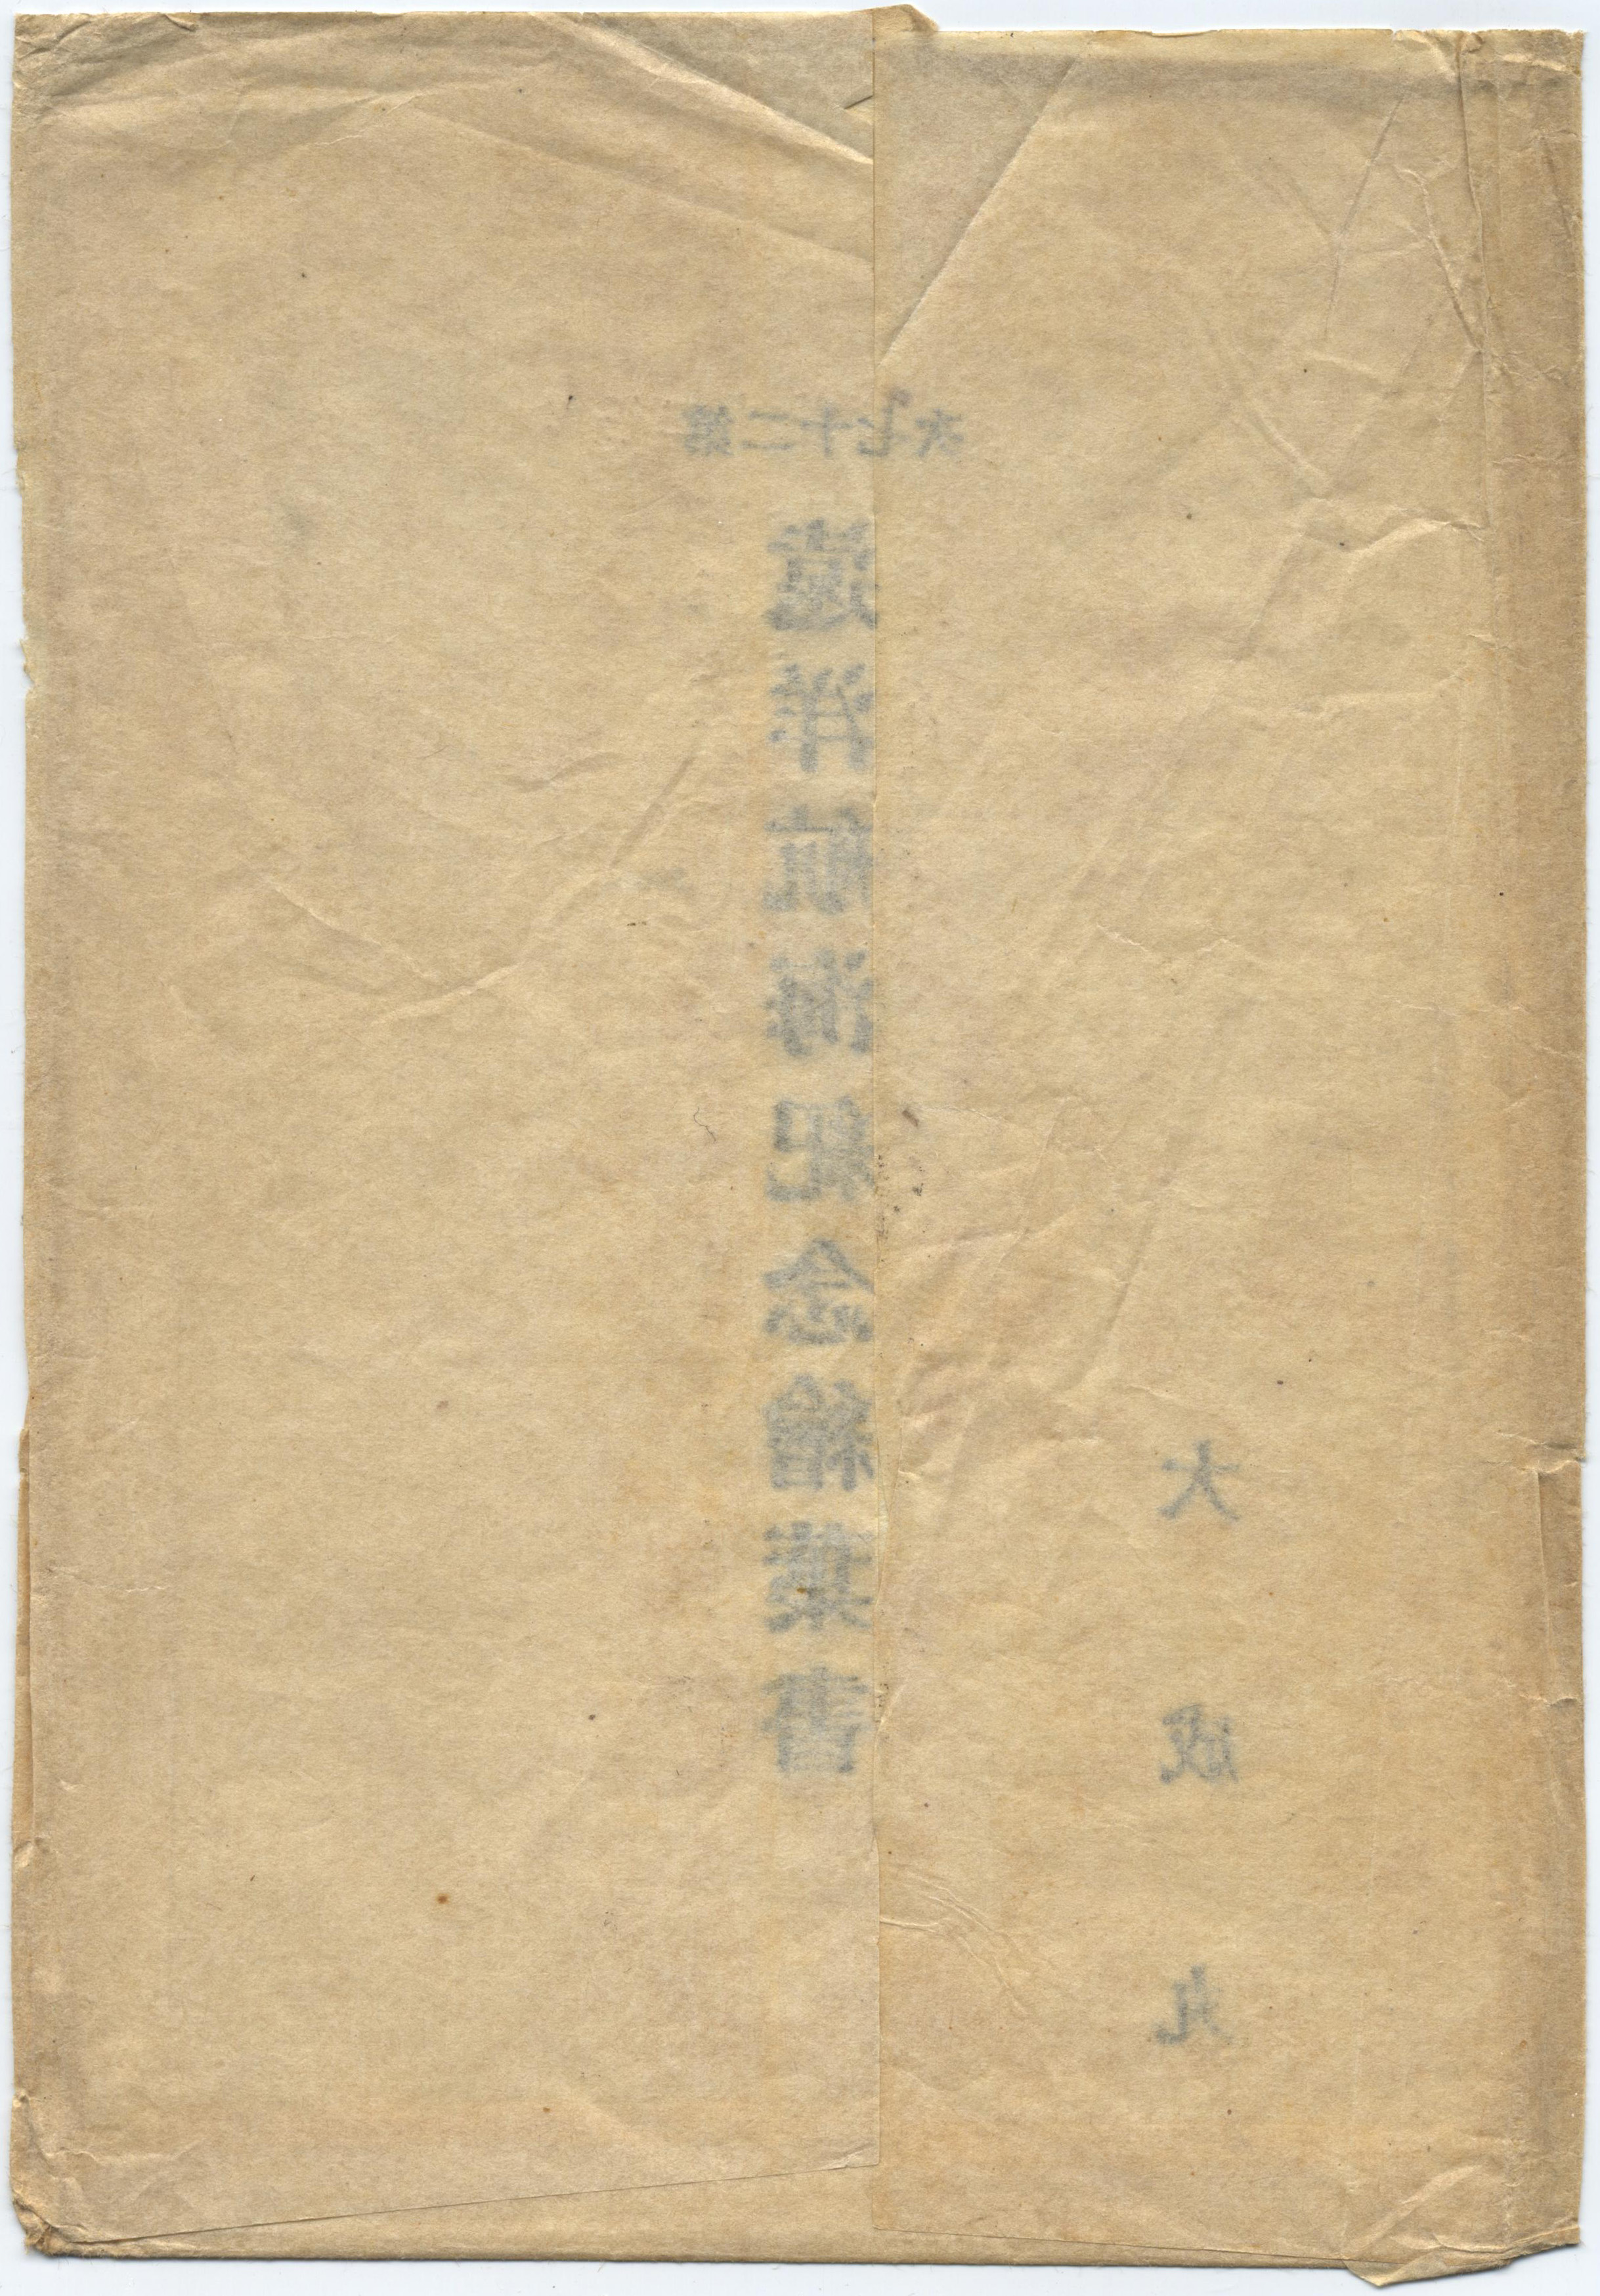 第二十七次
遠洋航海紀念繪葉書
大成丸